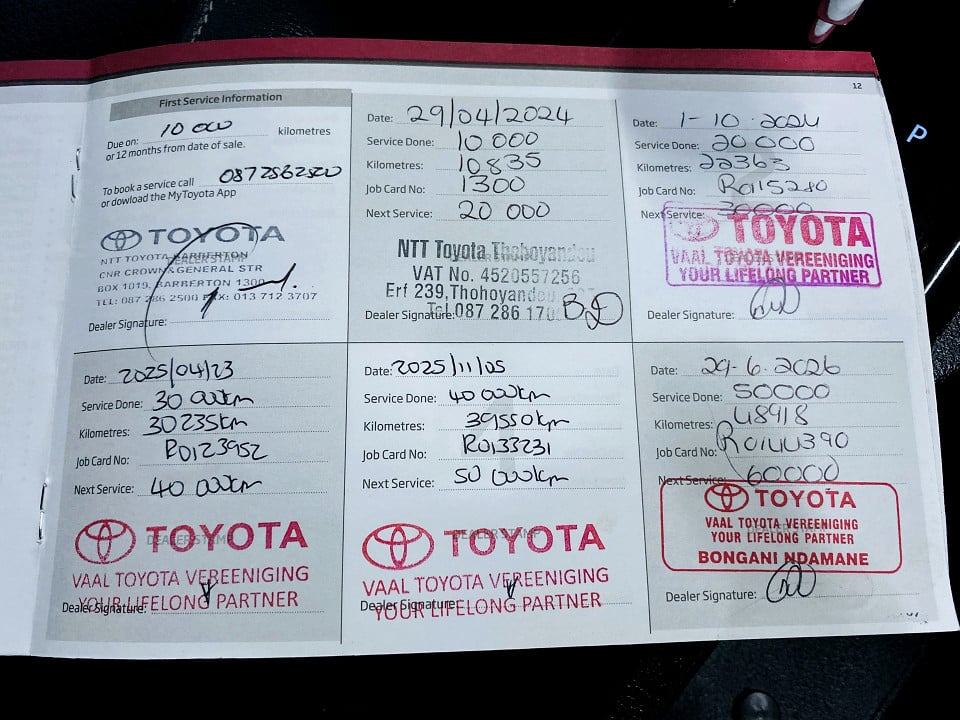 12
First Service Information
Due on: 10 000 kilometres
or 12 months from date of sale.
To book a service call 0872862520
or dowload the MyToyota App
TOYOTA
NTT TOYOTA BARBERTON
DEALER STAMP
CNR CROWN & GENERAL STR
BOX 1019, BARBERTON 1300
TEL: 087 286 2500 FAX: 013 712 3707
Dealer Signature:
Date: 29/04/2024
Service Done: 10 000
Kilometres: 10835
Job Card No: 1300
Next Service: 20 000
NTT Toyota Thohoyandou
VAT No. 4520557256
Erf 239, Thohoyandou
Tel 087 286 170
Dealer Signature:
Date: 1-10.2024
Service Done: 20 000
Kilometres: 22363
Job Card No: R0115280
Next Service: 30000
TOYOTA
VAAL TOYOTA VEREENIGING
YOUR LIFELONG PARTNER
Dealer Signature:
Date: 2025/04/23
Service Done: 30 000km
Kilometres: 30235km
Job Card No: R0123952
Next Service: 40 000km
DEALER STAMP
TOYOTA
VAAL TOYOTA VEREENIGING
YOUR LIFELONG PARTNER
Dealer Signature:
Date: 2025/11/05
Service Done: 40 000km
Kilometres: 39550km
Job Card No: R0133231
Next Service: 50 000km
DEALER STAMP
TOYOTA
VAAL TOYOTA VEREENIGING
YOUR LIFELONG PARTNER
Dealer Signature:
Date: 29-6.2026
Service Done: 50000
Kilometres: 48918
Job Card No: R0144390
Next Service: 60000
TOYOTA
VAAL TOYOTA VEREENIGING
YOUR LIFELONG PARTNER
BONGANI NDAMANE
Dealer Signature:
P